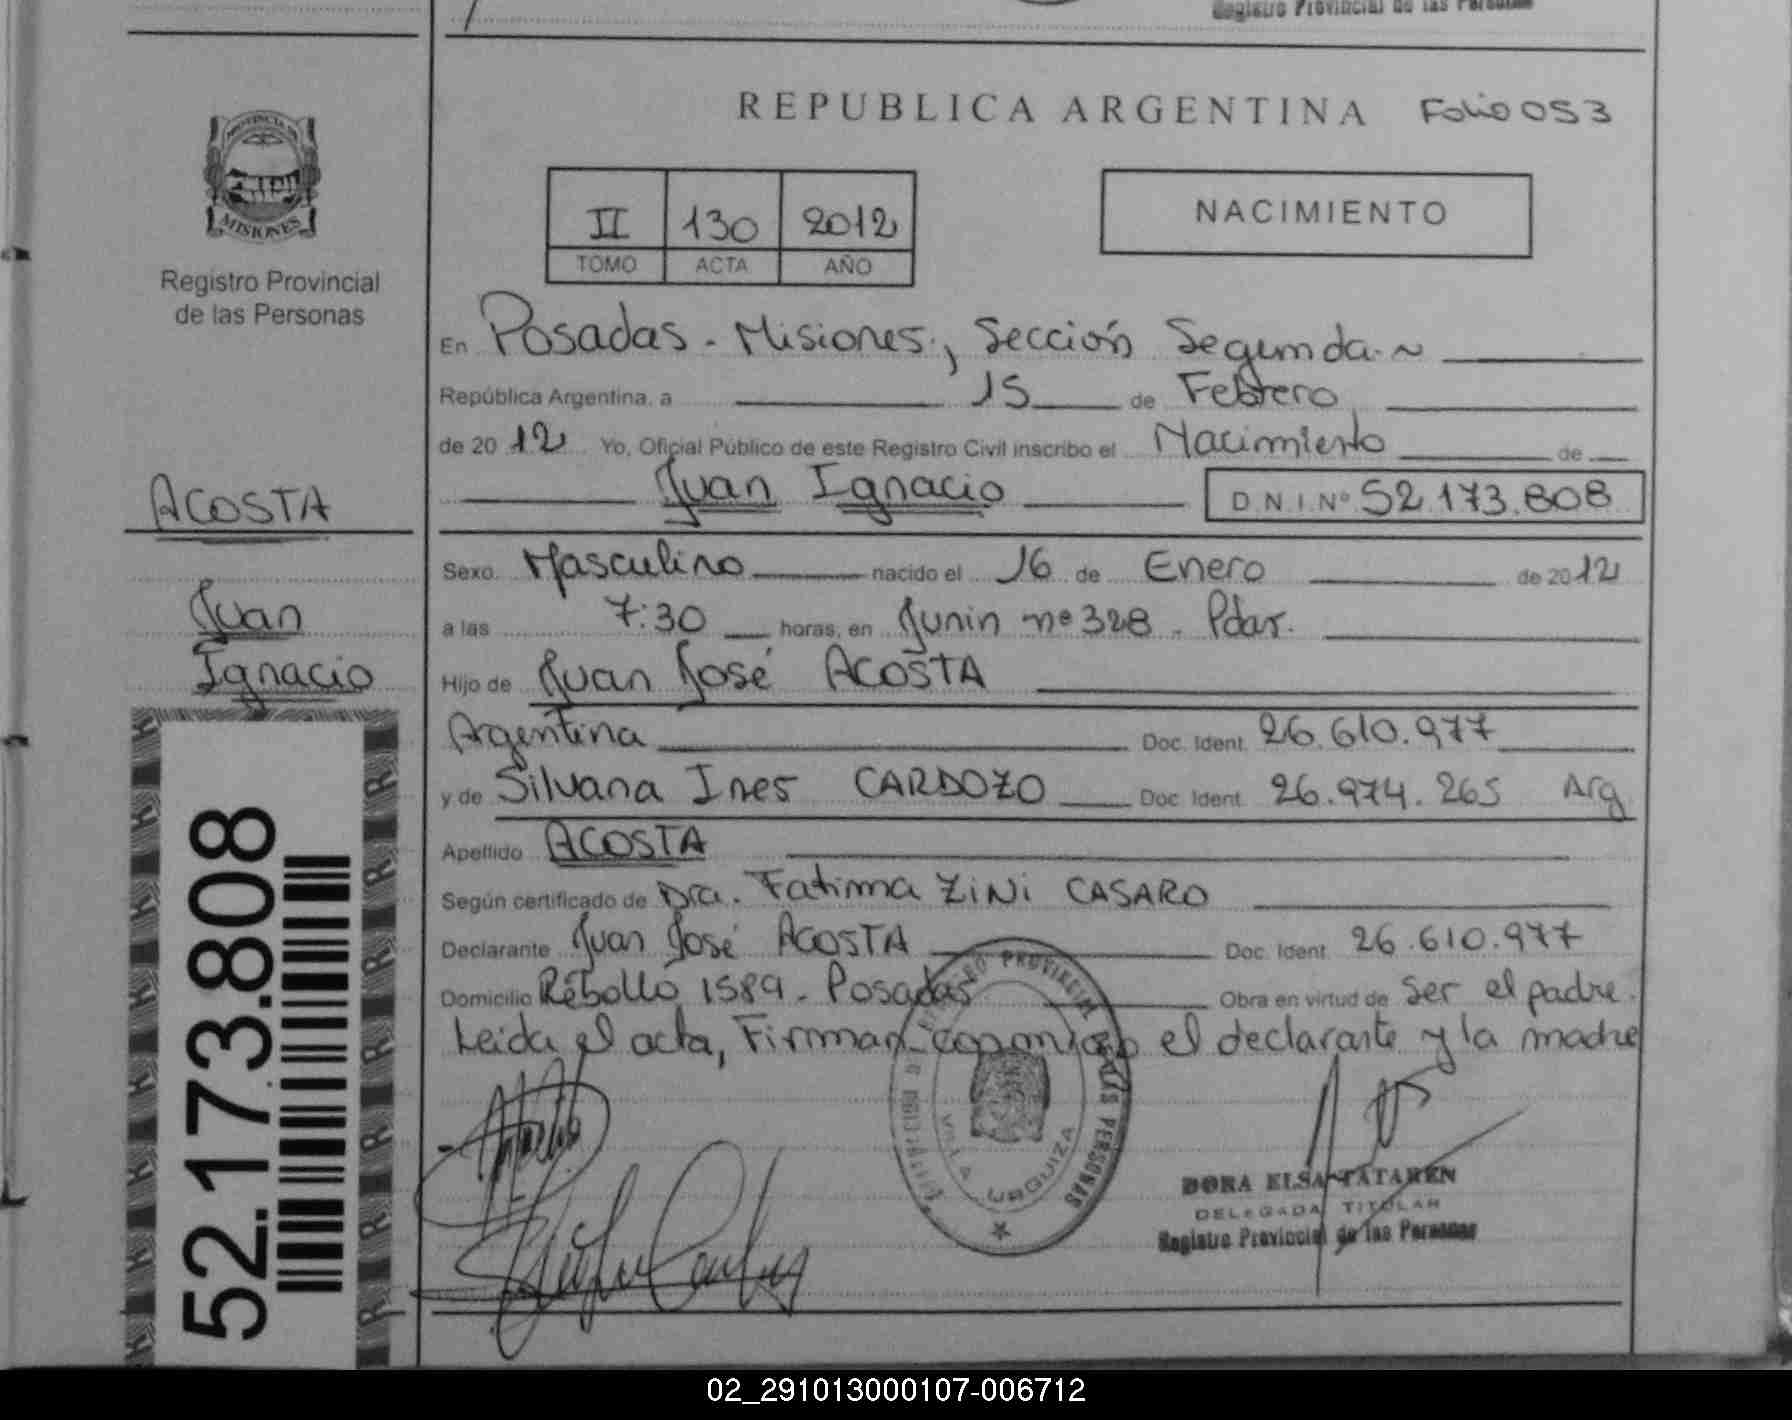 Registro Provincial de las Personas
REPUBLICA ARGENTINA Folio 053
PROVINCIA DE
MISIONES
Registro Provincial
de las Personas
II 130 2012
TOMO ACTA AÑO
NACIMIENTO
En Posadas - Misiones, Sección Segunda.~
República Argentina, a 15 de Febrero
de 2012 Yo, Oficial Público de este Registro Civil inscribo el Nacimiento de
Juan Ignacio D.N.I.Nº 52.173.808
ACOSTA
Juan
Ignacio
52.173.808
Sexo Masculino nacido el 16 de Enero de 2012
a las 7:30 horas, en Junin nº 328 - Pdas.
Hijo de Juan José ACOSTA
Argentina Doc. Ident. 26.610.977
y de Silvana Ines CARDOZO Doc. Ident. 26.974.265 Arg
Apellido ACOSTA
Según certificado de Dra. Fatima ZiNi CASARO
Declarante Juan José ACOSTA Doc. Ident. 26.610.977
Domicilio Rebollo 1589 - Posadas Obra en virtud de Ser el padre.
Leida el acta, Firman conmigo el declarante y la madre
REGISTRO PROVINCIAL DE LAS PERSONAS
VILLA URQUIZA
DORA ELSA TATAREN
DELEGADA TITULAR
Registro Provincial de las Personas
02_291013000107-006712